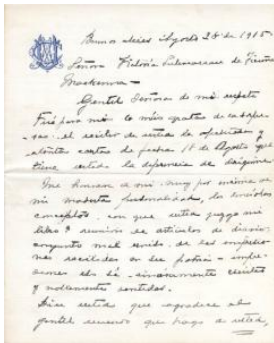 Buenos Aires Agosto 28 de 1915
Señora Victoria Subercaseaux de Vicuña
Mackenna
Gentil Señora de mi respeto
Fué para mi la más grata de las sorpre-
sas el recibir de usted la
atenta carta de fecha 18 de Agosto que
tiene usted la deferencia de dirigirme
Me honran a mi muy por encima de
mi modesta personalidad, los
conceptos con que usted juzga mi
libro reunion de articulos de diario,
conjunto de las impresio-
nes recibidas en su patria - impre-
siones sinceramente escritas
y noblemente sentidas.
Dice usted que agradece el
gentil recuerdo que hago de usted,